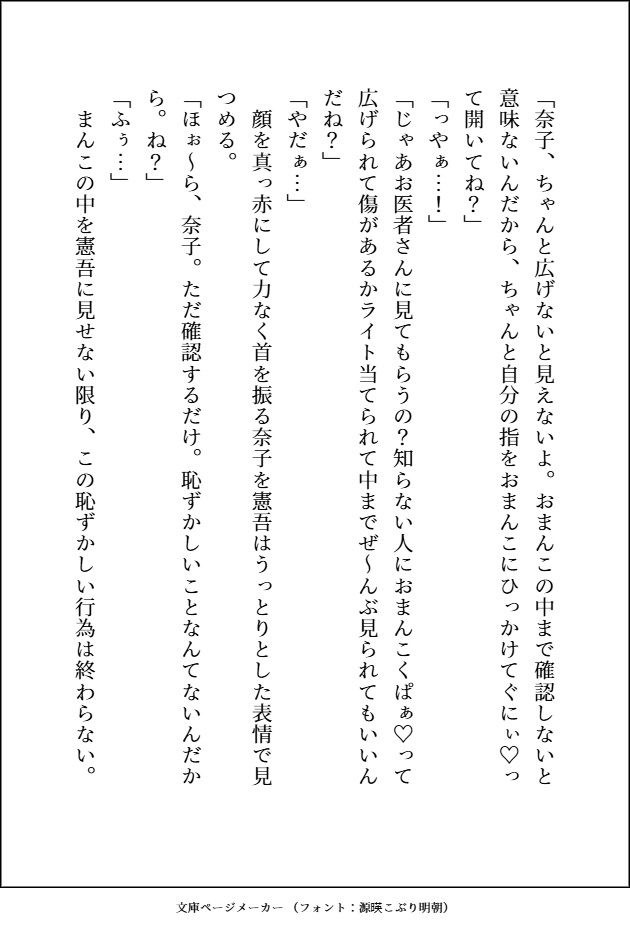 「奈子、ちゃんと広げないと見えないよ。おまんこの中まで確認しないと
意味ないんだから、ちゃんと自分の指をおまんこにひっかけてぐにぃ♡っ
て開いてね？」
「っやぁ…！」
「じゃあお医者さんに見てもらうの？知らない人におまんこくぱぁ♡って
広げられて傷があるかライト当てられて中までぜ〜んぶ見られてもいいん
だね？」
「やだぁ…」
　顔を真っ赤にして力なく首を振る奈子を憲吾はうっとりとした表情で見
つめる。
「ほぉ〜ら、奈子。ただ確認するだけ。恥ずかしいことなんてないんだか
ら。ね？」
「ふぅ…」
　まんこの中を憲吾に見せない限り、この恥ずかしい行為は終わらない。
文庫ページメーカー （フォント：源暎こぶり明朝）